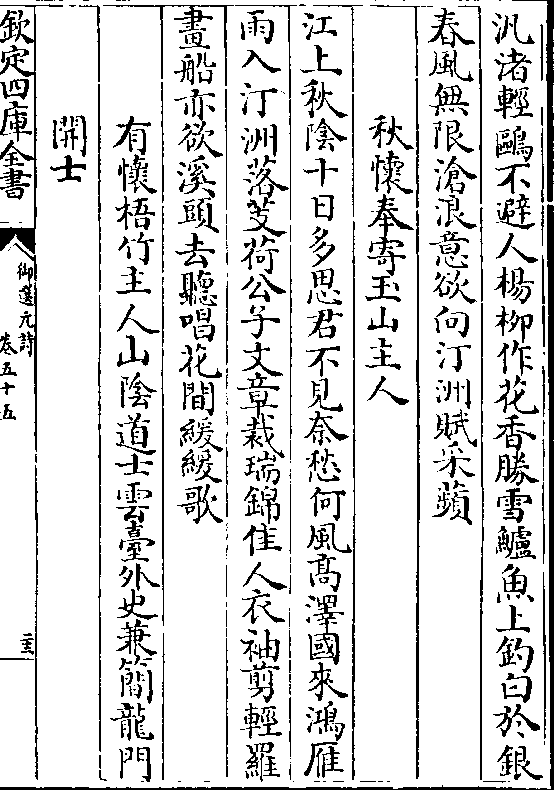 汎渚輕鷗不避人楊柳作花香勝雪鱸魚上釣白於銀
春風無限滄浪意欲向汀洲賦采蘋
秋懷奉寄玉山主人
江上秋陰十日多思君不見奈愁何風髙澤國來鴻雁
雨入汀洲落芰荷公子文章裁瑞錦佳人衣袖剪輕羅
畫船亦欲溪頭去聽唱花間緩緩歌
有懷梧竹主人山陰道士雲臺外史兼簡龍門
開士
欽定四庫全書
御選元詩
卷五十五
二十三